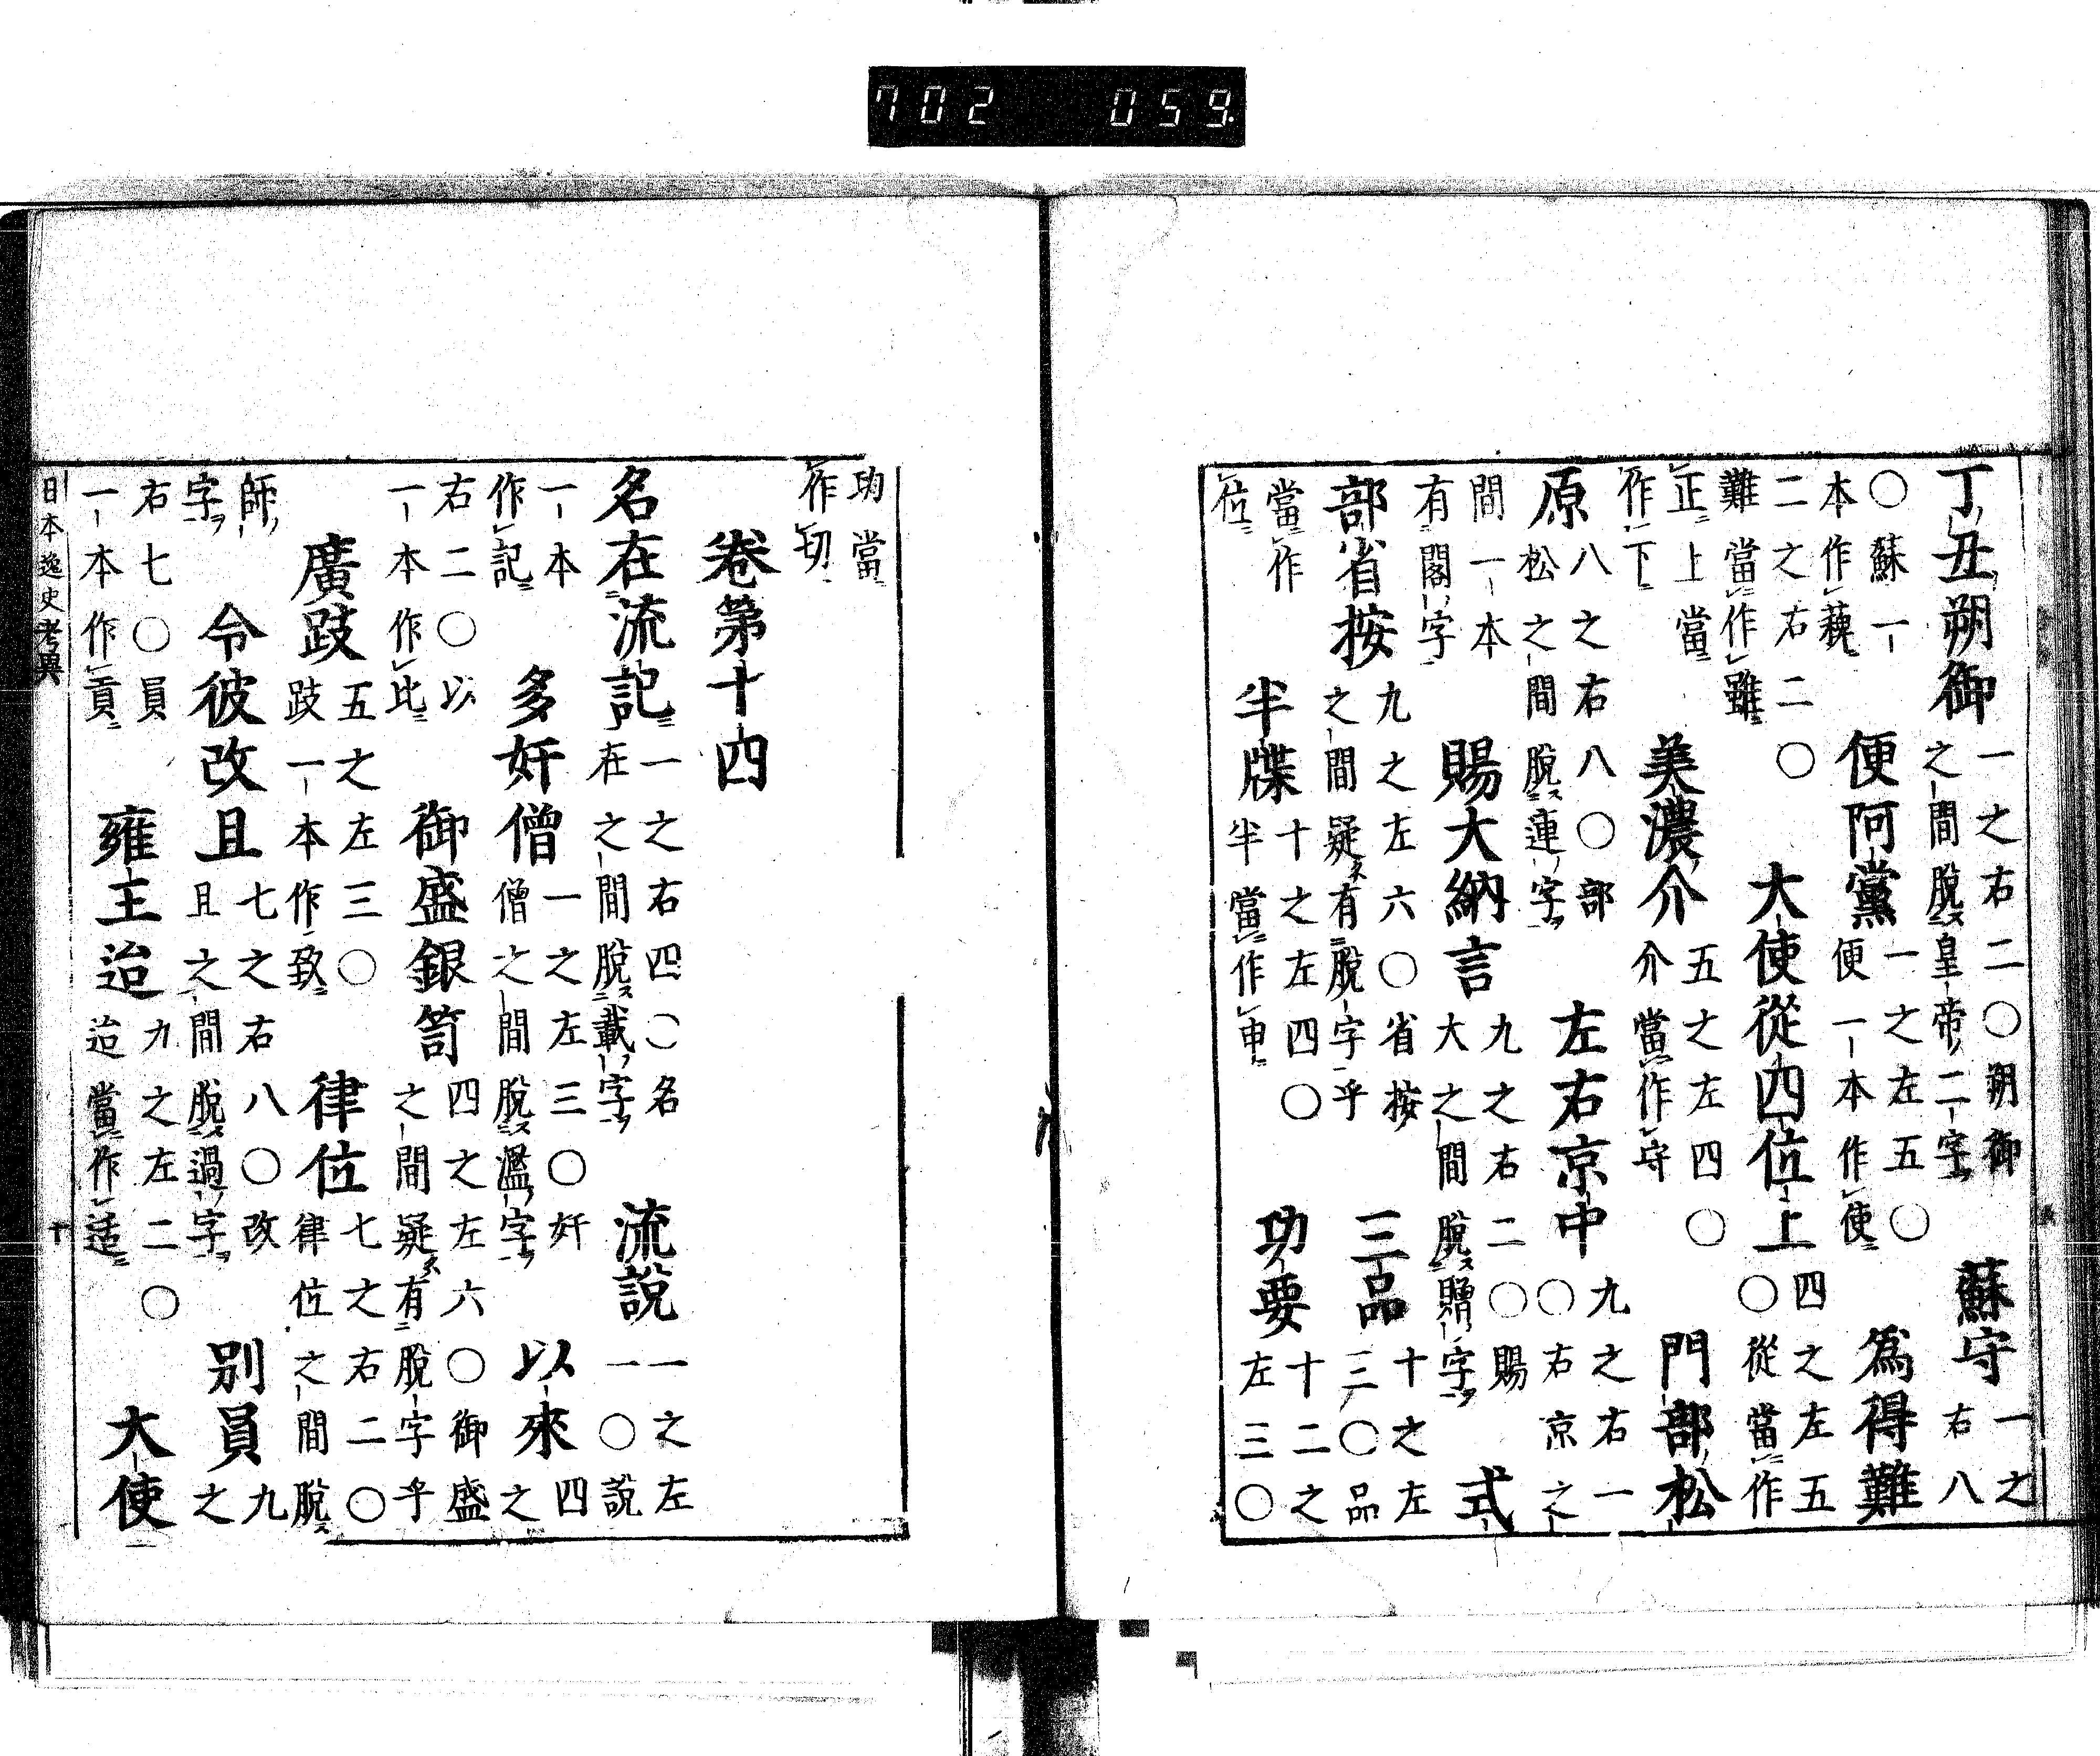 702 059
丁丑朔御 一之右二〇朔御之間脫皇帝二字 蘇守 一之右八
〇蘇一本作藱 便阿黨 一之左五〇便一本作使 爲得難
二之右二〇難當作雖 大使從四位上 四之左五〇從當作
正上當作下 美濃介 五之左四〇介當作守 門部松
原 八之右八〇部松之間脫連字 左右京中 九之右一〇右京之
間一本有閣字 賜大納言 九之右二〇賜大之間脫贈字 式
部省按 九之左六〇省按之間疑有脫字乎 三品 十之左三〇品
當作位 半牒 十之左四〇半當作申 功要 十二之左三〇
功當作切
卷第十四
名在流記 一之右四〇名在之間脫載字 流說 一之左一〇說
一本作記 多奸僧 一之左三〇奸僧之間脫濫字 以來 四之
右二〇以一本作比 御盛銀笥 四之左六〇御盛之間疑有脫字乎
廣跂 五之左三〇跂一本作致 律位 七之右二〇律位之間脫
師字 令彼改且 七之右八〇改且之間脫過字 別員 九之
右七〇員一本作貢 雍王迨 九之左二〇迨當作逺 大使
日本逸史考異 十